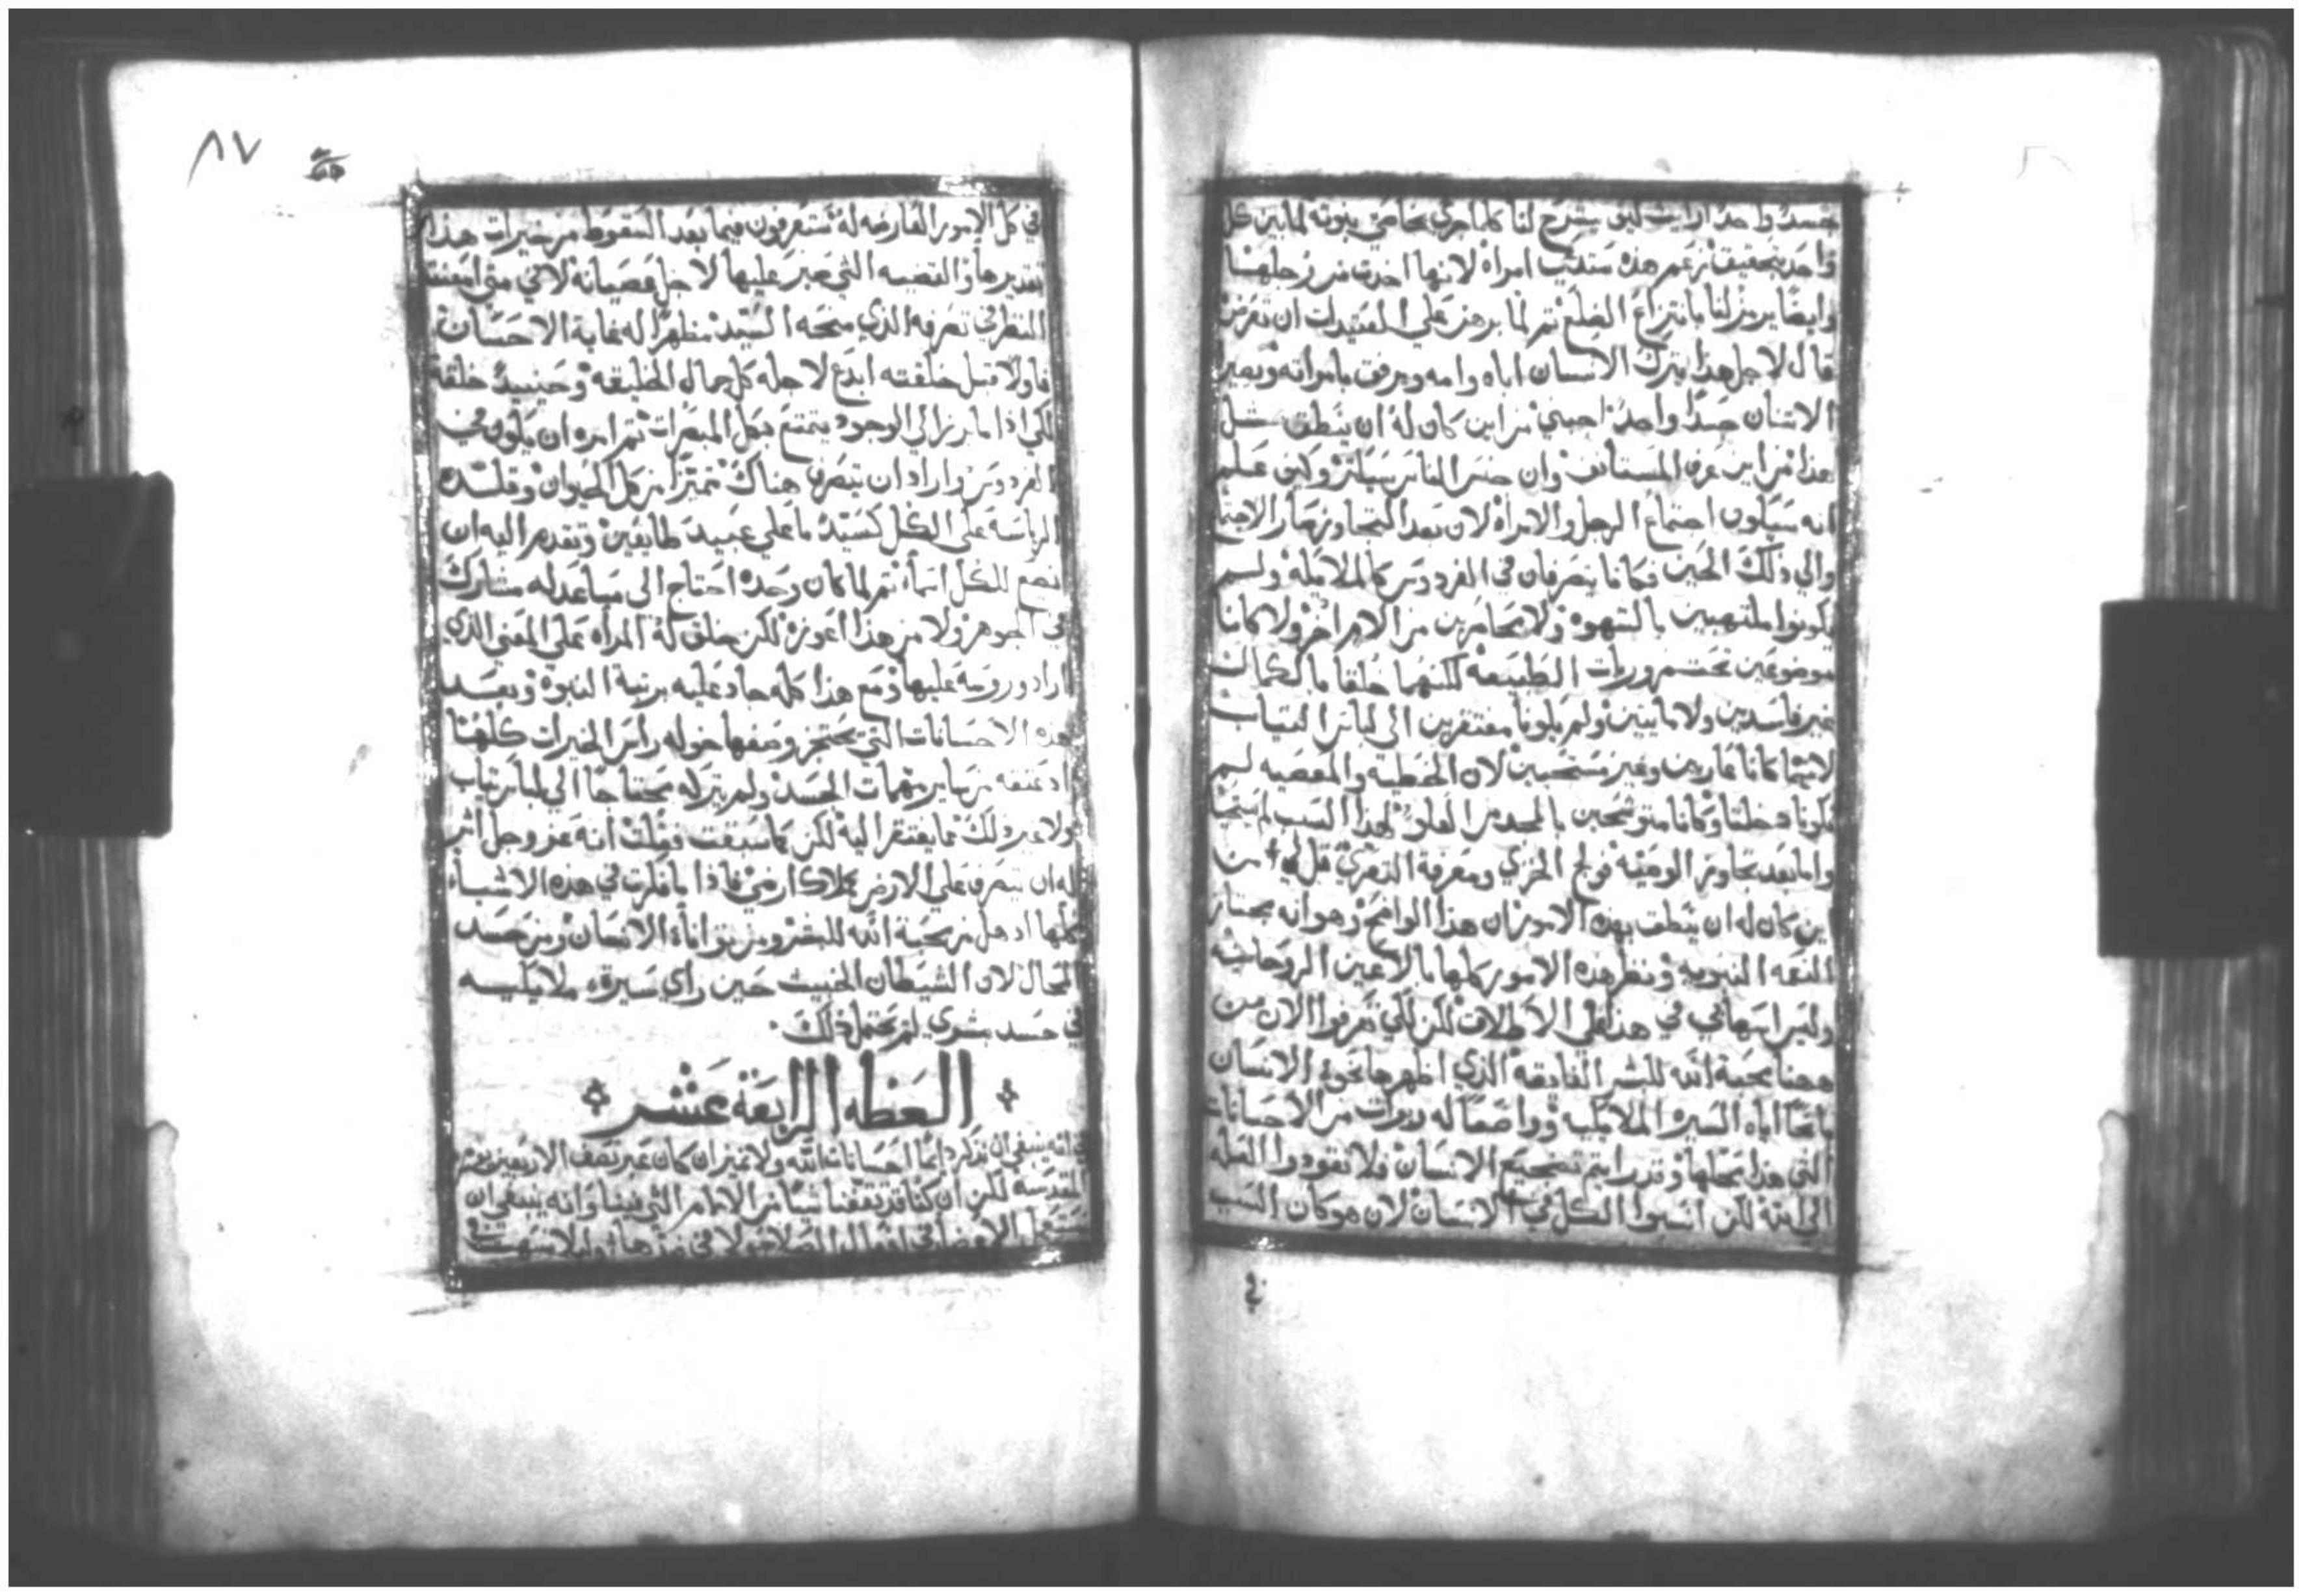 جسدًا واحدًا ارايت كيف يشرح لنا كلما جرى بنبوته لما بين كل
واحد بتحقيق زعم هذه ستدعى امراة لانها اخدت من رجلها
وايضًا يرمز لنا بانتزاع الضلع ثم لما برهن على العتيدات ان تعرض
قال لاجل هذا يترك الانسان اباه وامه ويرفق بامراته ويصير
الاتنان جسدًا واحدًا اجبني من اين كان له ان ينطق مثل
هذا من اين عرف المستانف وان جنس الناس سيكثر وكيف علم
انه سيكون اجتماع الرجل والامراة لان بعد التجاوز صار الاجتماع
والى ذلك الحين فكانا يتصرفان في الفردوس كالملايكة ولم
يكونوا ملتهبين بالشهوة ولا محاصرين من الام اخر ولا كانا
موضوعين تحت ضروريات الطبيعه لكنهما خلقا بالكمال
غير فاسدين ولا مايتين ولم يكونا مفتقرين الى لباس التياب
لانهما كانا عاريين وغير مستحيين لان الخطية والمعصيه لم
تكونا دخلتا وكانا متوشحين بالمجد من العلو لهذا السبب لم يستحيا
واما بعد تجاوز الوصية فولج الخزي ومعرفة التعري قل لي من
اين كان له ان ينطق بهذه الامور ان هذا الواضح وهو انه بحتار
النعمه النبويه ونظر هذه الامور كلها بالاعين الروحانية
وليس اسهابي في هذا على الاطلاق لكن لكي تعرفوا الان من
ههنا محبة الله للبشر الفايقه الذي اظهرها نحو الانسان
مانحًا اياه السيرة الملايكية وواضعًا له ربوات من الاحسانات
التي هذا محلها وقدر ايتم تضجيع الانسان فلا تقودوا العله
الى الله لكن انسبوا الكل الى الانسان لان هو كان السبب
في
٨٧
في كل الامور العارضه له ستعرفون فيما بعد السقوط من خيرات هذا
تقديرها والقضيه التي صبر عليها لاجل عصيانه لاني متى امعنت
النظر في تصرفه الذي منحه السيد مظهرًا له غاية الاحسان
فاولا قبل خلقته ابدع لاجله كل جمال الخليقه وحينيذ خلقه
لكي اذا ما برز الى الوجود يتمتع بكل المبصرات ثم امره ان يكون في
الفردوس واراد ان يتصرف هناك متميزًا من كل الحيوان وقلده
الرياسة على الكل كسيد ما على عبيد طايعين وتقدم اليه ان
يضع للكل اسماء ثم لما كان وحده احتاج الى مساعد له مشارك
في الجوهر ولا من هذا اعوزه لكن خلق له المراه على المعنى الذي
اراد وروسه عليها ومع هذا كله جاد عليه برتبة النبوة وبعد
هذه الاحسانات التي يعتجز وصفها خوله راس الخيرات كلها
اذ عتقه من ساير مهمات الجسد ولم يتركه محتاجًا الى لباس تياب
ولا غير ذلك مما يفتقر اليه لكن كما سبقت فقلت انه عز وجل اثر
له ان يتصرف على الارض كملاك ارضي فاذا ما فكرت في هذه الاشياء
كلها اذهل من محبة الله للبشر ومن تواناة الانسان ومن حسد
المحال لان الشيطان الخبيث حين راى سيرة ملايكيه
في جسد بشري لم يحتمل ذلك
العظه الرابعة عشر
في انه ينبغي ان نذكر دايمًا احسانات الله ولا نميز ان كان عبر نصف الاربعين يوم
المقدسة لكن ان كنا قد تيقفنا شيًا من الالام التي فينا وانه ينبغي ان